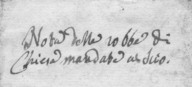 Nota delle robbe di
Chiesa mandate a